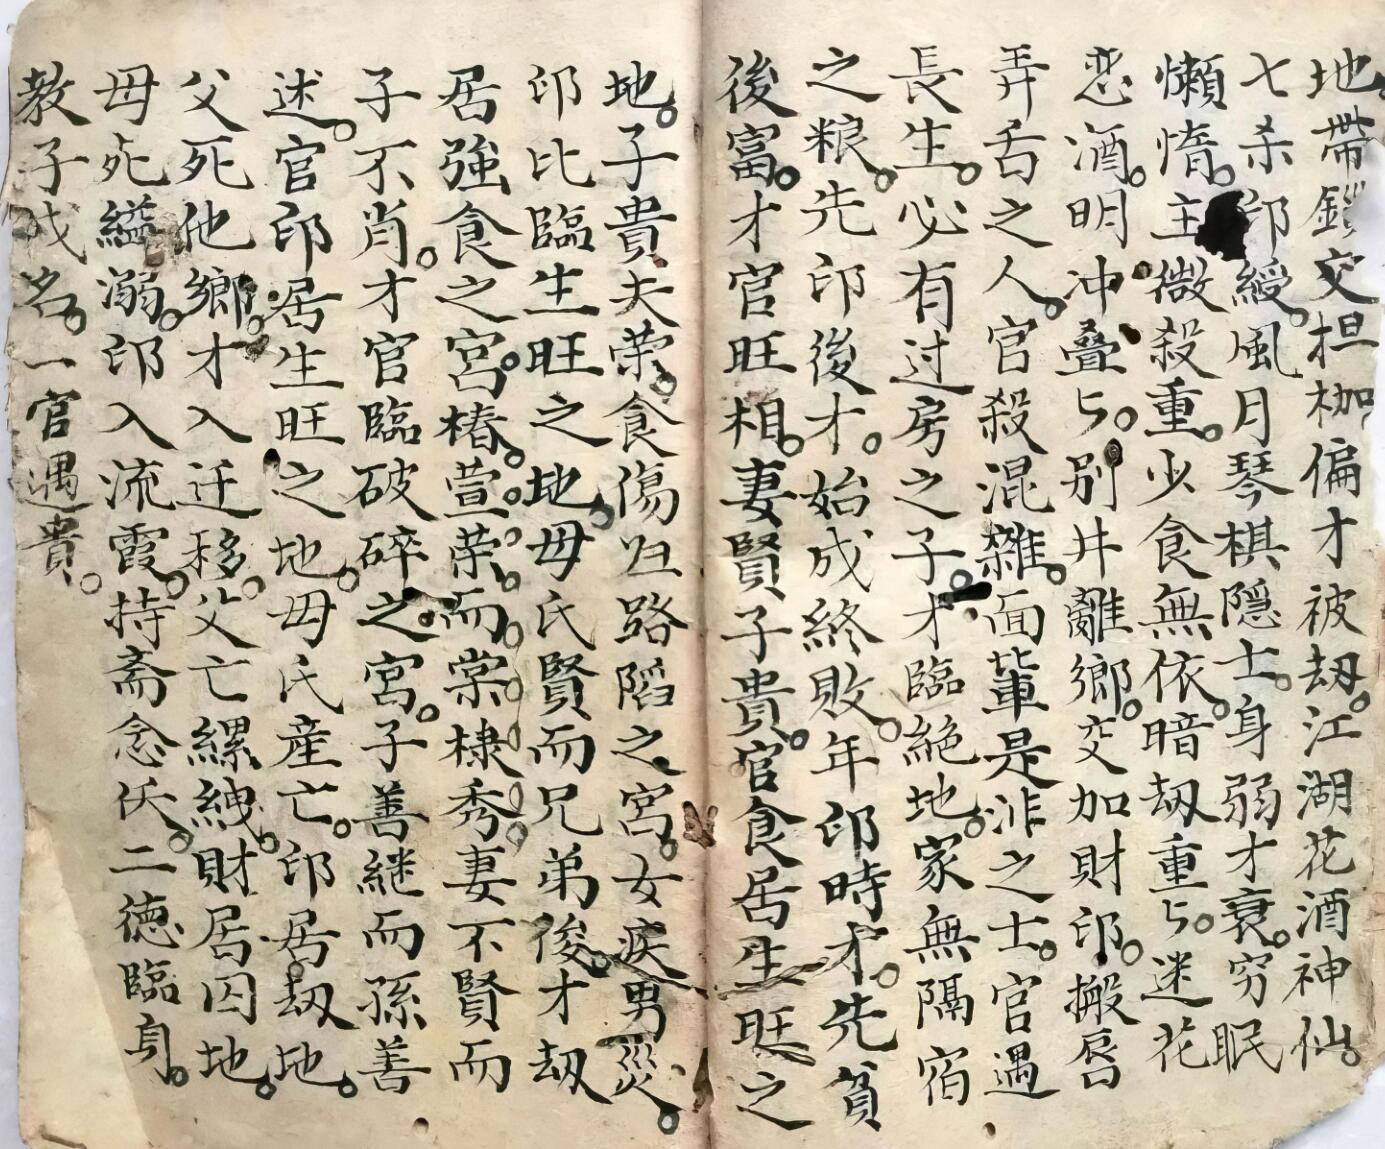 地。帶鎖交枷枷偏才被刼。江湖花酒神仙。
七杀印綬。風月琴棋隱士。身弱才衰。穷眠
懶惰。主微殺重。少食無依。暗刼重〻。迷花
恋酒。明冲叠〻。別井離鄉。交加財印。搬唇
弄舌之人。官殺混雜。面軰是非之士。官遇
長生。必有过房之子。才臨絕地。家無隔宿
之粮。先印後才。始成終敗。年印時才。先貧
後富。才官旺相。妻賢子貴。官食居生旺之
地。子貴夫荣。食傷归路陷之宮。女疾男災。
印比臨生旺之地。母氏賢而兄弟俊。才刼
居強食之宮。椿萱荣而棠棣秀。妻不賢而
子不肖。才官臨破碎之宮。子善継而孫善
述。官印居生旺之地。母氏産亡。印居刼地。
父死他鄉。才入迁移。父亡縲絏。財居囚地。
母死縊溺。印入流霞。持斋念仸。二德臨身。
教子成名。一官遇貴。